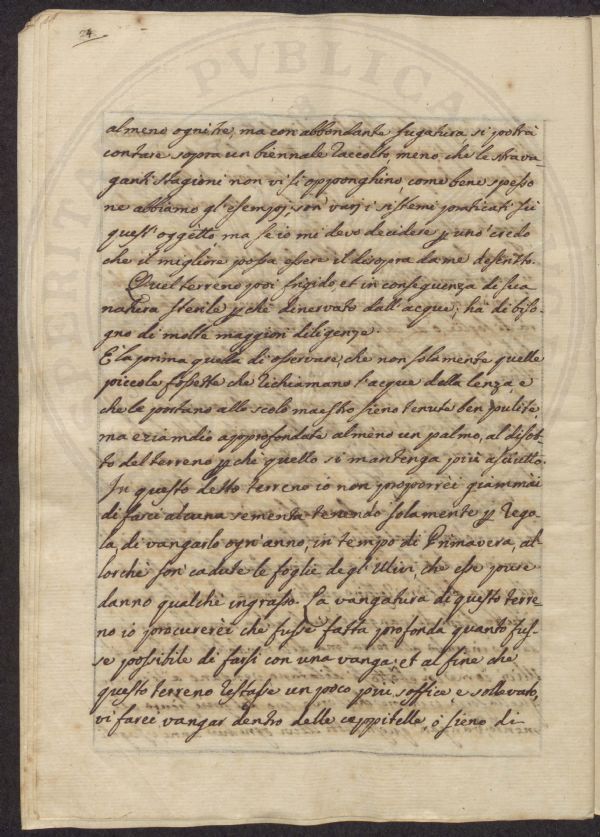 24.
PVBLICA
almeno ogni tre, ma con abbondante fugatura si potrà
contare sopra un biennale raccolto, meno, che le strava-
ganti stagioni non vi si opponghino, come bene spesso
ne abbiamo gl'esempj; son varj i sistemi praticati su
quest'oggetto, ma se io mi devo decidere p uno credo
che il migliore possa essere il disopra da me descritto.
Quel terreno poi frigido, et in conseguenza di sua
natura sterile p chè dinervato dall'acque; hà di biso-
gno di molte maggiori diligenze.
E la prima quella di osservare, che non solamente quelle
piccole fossette che richiamano l'acque della lenza, e
che la portano allo scolo maestro sieno tenute ben pulite,
ma eziamdio approfondate almeno un palmo, al disot-
to del terreno p chè quello si mantenga più asciutto.
In questo detto terreno io non proporrèi giammài
di farci alcuna sementa tenendo solamente p rego-
la, di vangarlo ogn'anno, in tempo di Primavera, al-
lorchè son cadute le foglie degl'Ulivi, che esse pure
danno qualchè ingrasso. La vangatura di questo terre-
no io procurerèi che fusse fatta profonda quanto fus-
se possibile di farsi con una vanga, et al fine che
questo terreno restasse un poco più soffice, e sollevato,
vi farei vangar dentro delle cappitelle, ò sieno di